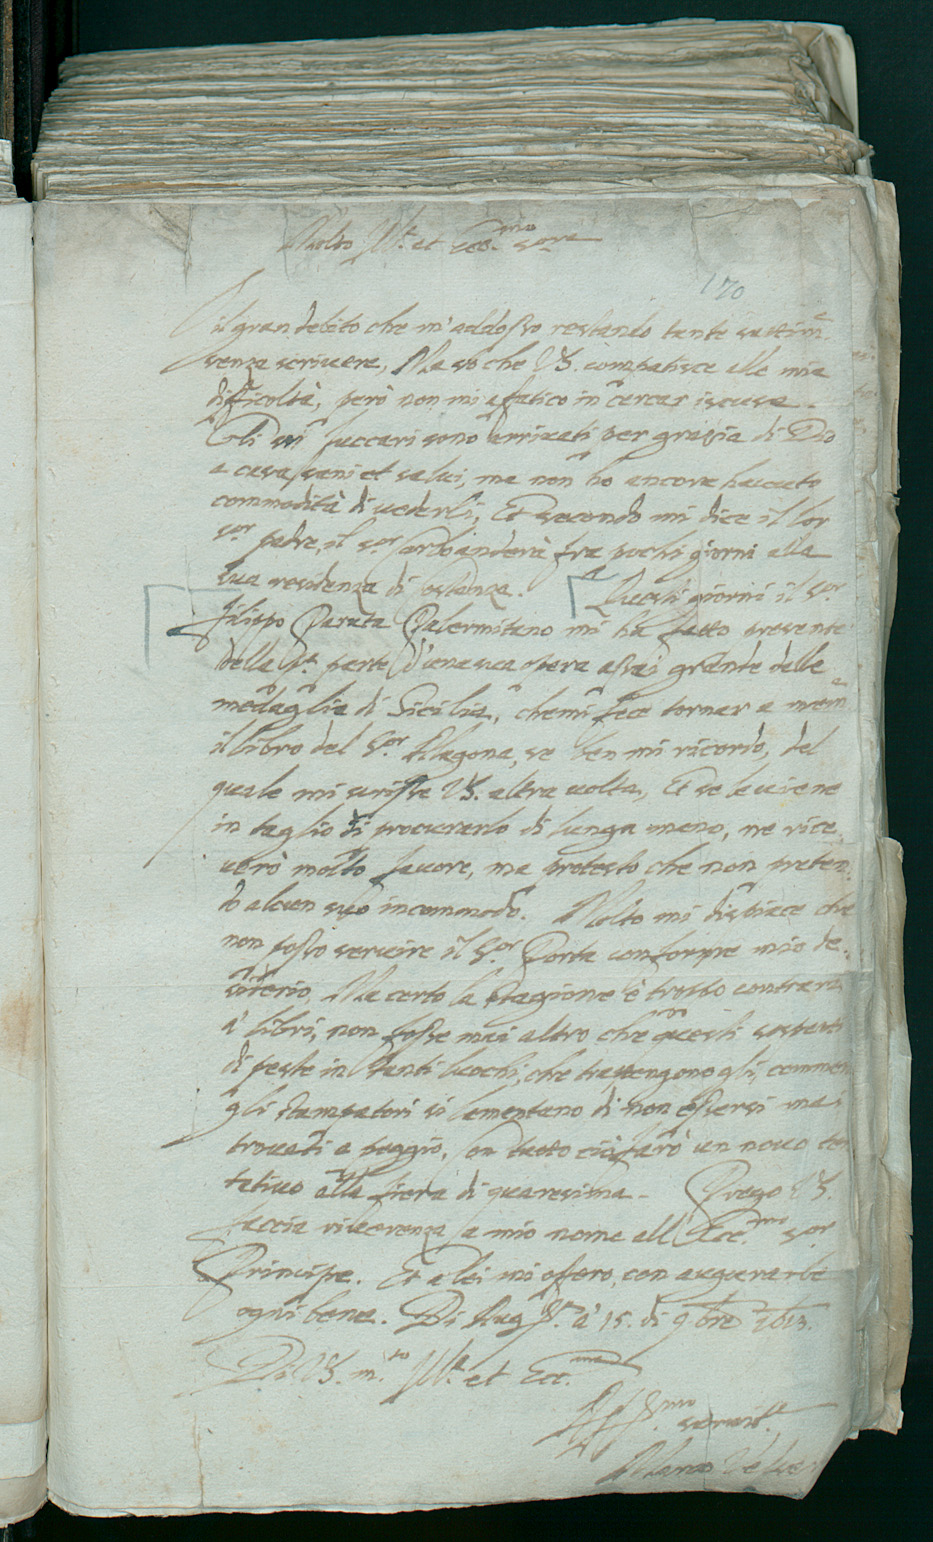 Molto Ill.e et Ecc.mo sor.e
170
il gran debito che m'addosso restando tante settim.e
senza scrivere, Ma so che VS. compatisce alle mie
dificoltà, però non mi afatico in cercar iscusa.
Gli ss.ri fuccari sono arrivati per grazia di Dio
a casa sani et salvi, ma non ho ancora havuto
commodità di vederli, Et secondo mi dice il lor
s.or padre, il s.or anderà fra pochi giorni alla
sua residenza di Costanza. Questi giorni il S.or
Filippo Paruta Palermitano mi ha fatto presente
della p.a parte d'una sua opera assai grande delle
medaglie di Sicilia, che mi fece tornar a mem.a
il libro del S.or Alagona, se ben mi ricordo, del
quale mi scrisse VS. altra volta, Et se le viene
in taglio di procurarlo di lunga mano, ne rice,
verò molto favore, ma protesto che non preten,
do alcun suo incommodo. Molto mi dispiace che
non posso servire il S.or Porta conforme mio de,
siderio, Ma certo la stagione è troppo contraria
a' libri, non fosse mai altro che questi sospetti
di peste in tanti luochi, che trattengono gli commer
gli stampatori si lamentano di non essersi mai
trovati a peggio, Con tutto ciò farò un novo ten
tativo alla fiera di quaresima. Prego VS.
faccia riverenza a mio nome all' Ecc.mo s.or
Principe. Et a lei mi offero, con augurarle
ogni bene. Di Aug.ta à 15. di 9bre 1613.
Di VS. m.to Ill.e et Ecc.ma
Aff.mo servit.e
Marco Velsero